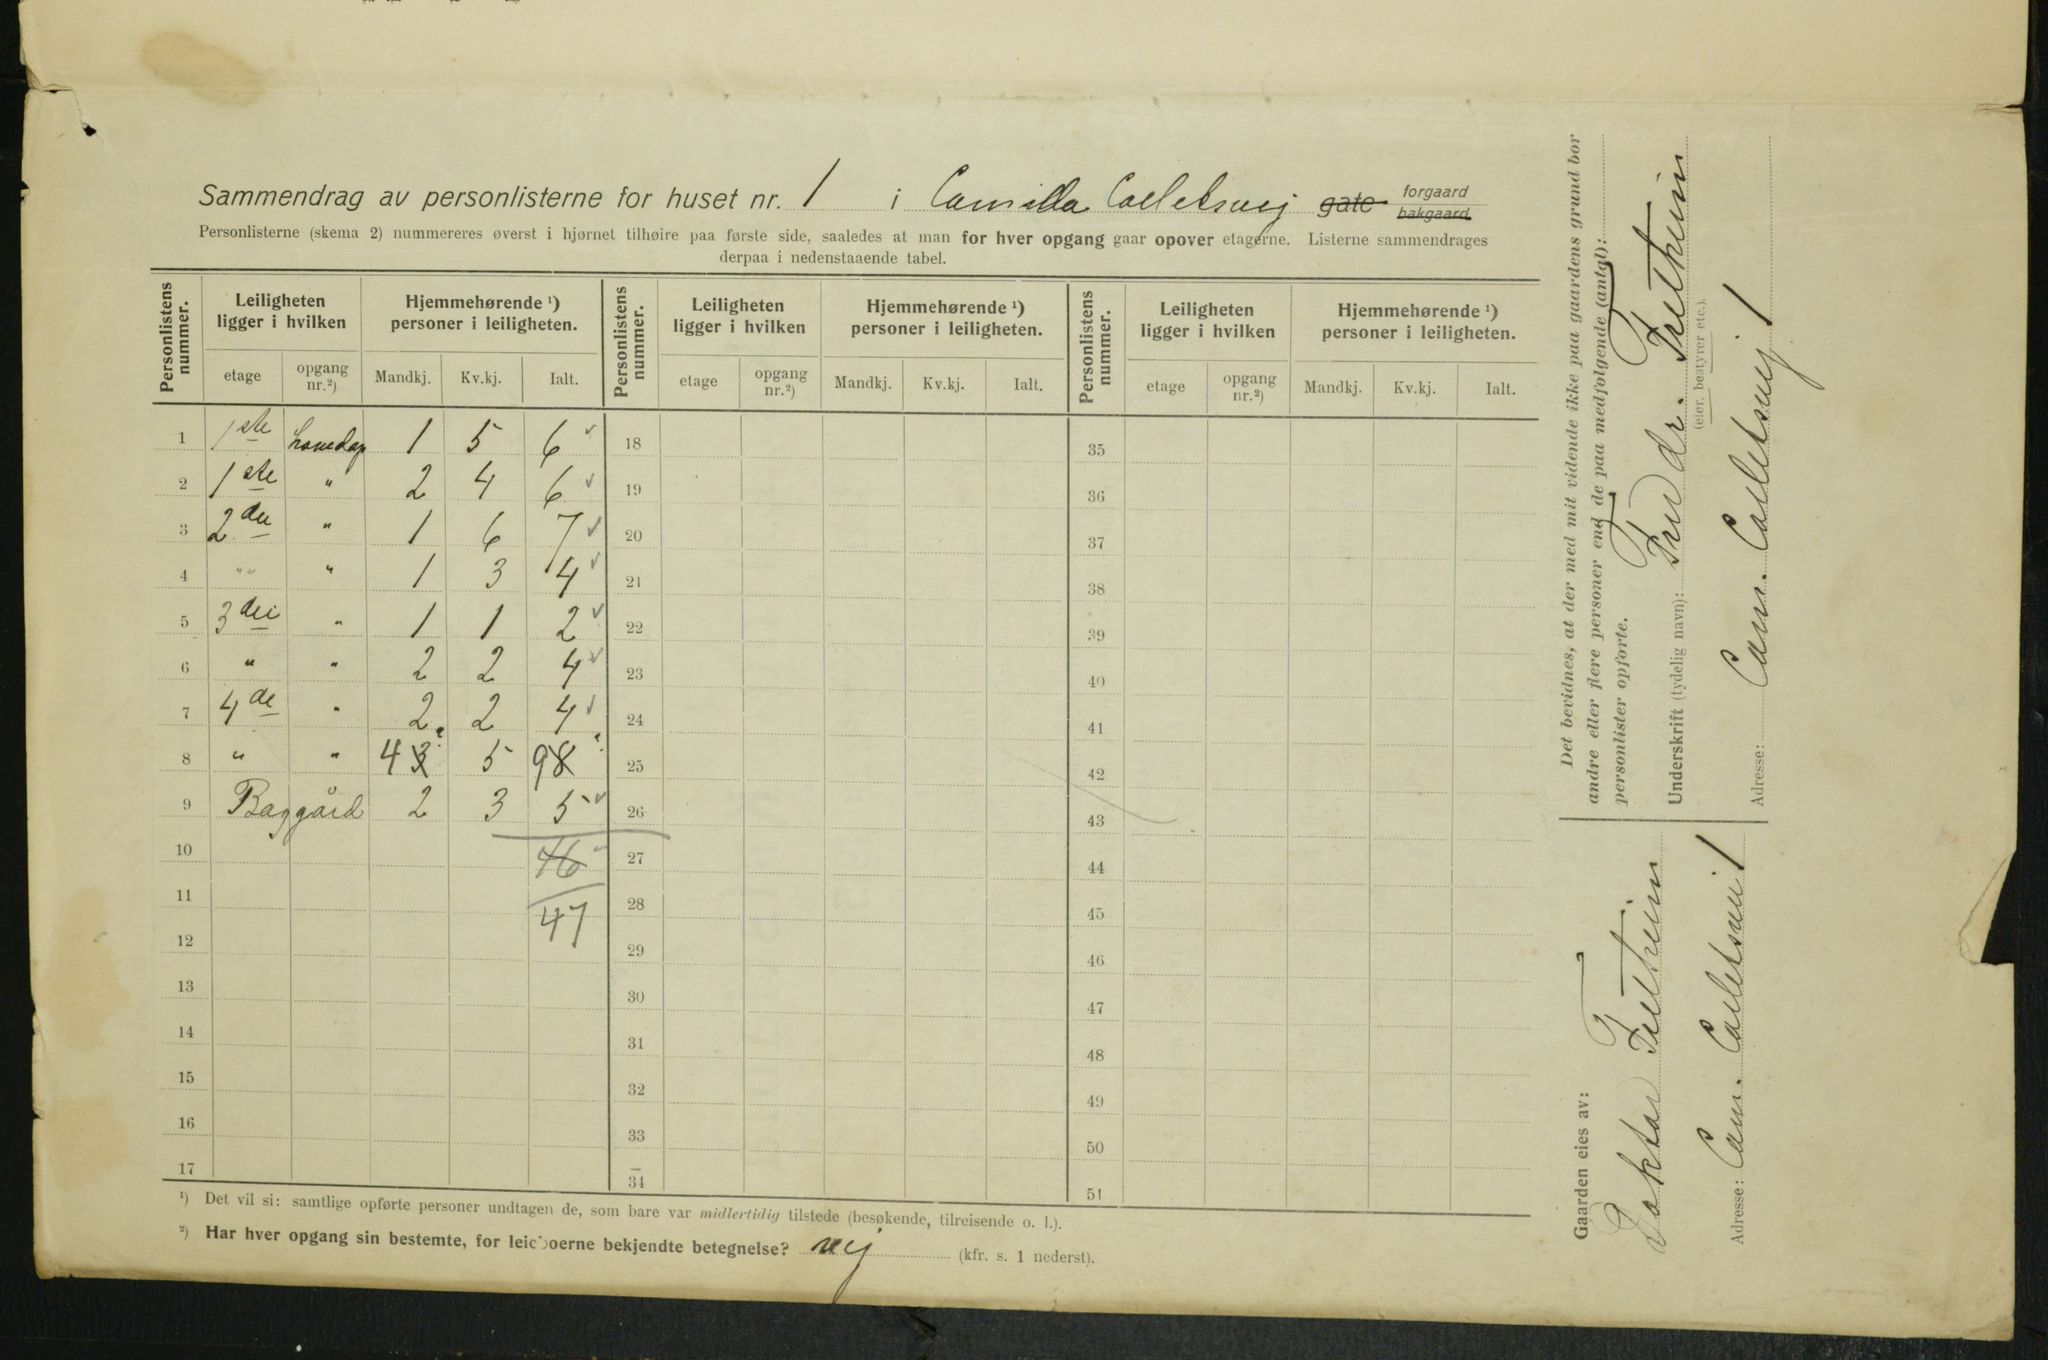 Sammendrag av personlisterne for huset nr. 1 i Camilla Colletsvej gate forgaard bakgaard
Personlisterne (skema 2) nummereres øverst i hjørnet tilhøire paa første side, saaledes at man for hver opgang gaar opover etagerne. Listerne sammendrages
derpaa i nedenstaaende tabel.
Personlistens nummer. Leiligheten ligger i hvilken Hjemmehørende ¹) personer i leiligheten. Personlistens nummer. Leiligheten ligger i hvilken Hjemmehørende ¹) personer i leiligheten. Personlistens nummer. Leiligheten ligger i hvilken Hjemmehørende ¹) personer i leiligheten.
etage opgang nr.²) Mandkj. Kv.kj. Ialt. etage opgang nr.²) Mandkj. Kv.kj. Ialt. etage opgang nr.²) Mandkj. Kv.kj. Ialt.
1 1ste 1 5 6 18 35
2 1ste " 2 4 6 19 36
3 2den " 1 6 7 20 37
4 "" " 1 3 4 21 38
5 3die " 1 1 2 22 39
6 " " 2 2 4 23 40
7 4de " 2 2 4 24 41
8 " " 4 3 5 9 8 25 42
9 Baggård 2 3 5 26 43
10 46 27 44
11 47 28 45
12 29 46
13 30 47
14 31 48
15 32 49
16 33 50
17 34 51
¹) Det vil si: samtlige opførte personer undtagen de, som bare var midlertidig tilstede (besøkende, tilreisende o. l.).
²) Har hver opgang sin bestemte, for leieboerne bekjendte betegnelse? nej (kfr. s. 1 nederst).
Det bevidnes, at der med mit vidende ikke paa gaardens grund bor
andre eller flere personer end de paa medfølgende (antal):
personlister opførte.
Underskrift (tydelig navn): dr.
(eier, bestyrer etc.).
Adresse: Cam. Colletsvej 1
Gaarden eies av:
Doktor
Adresse: Cam. Colletsvei 1